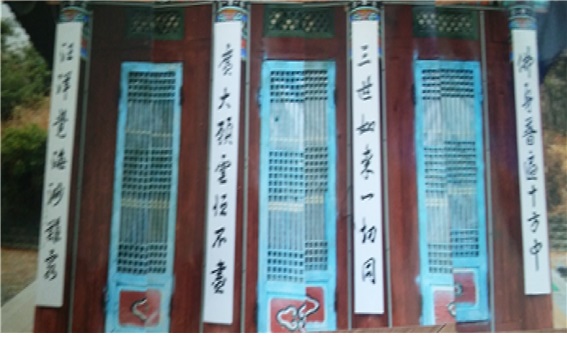 佛身普遍十方中
三世如來一體同
廣大願雲恒不盡
汪洋覺海渺難窮